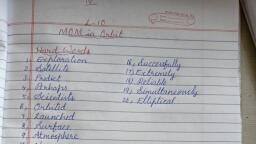 L-10
MOM in Orbit
Hard Words
1. Exploration
2. Satellite
3. Predict
4. Perhaps
5. Scientists
6. Orbited
7. Launched
8. Surface
9. Atmosphere
16. Successfully
17. Extremely
18. Reliable
19. Simultaneously
20. Elliptical